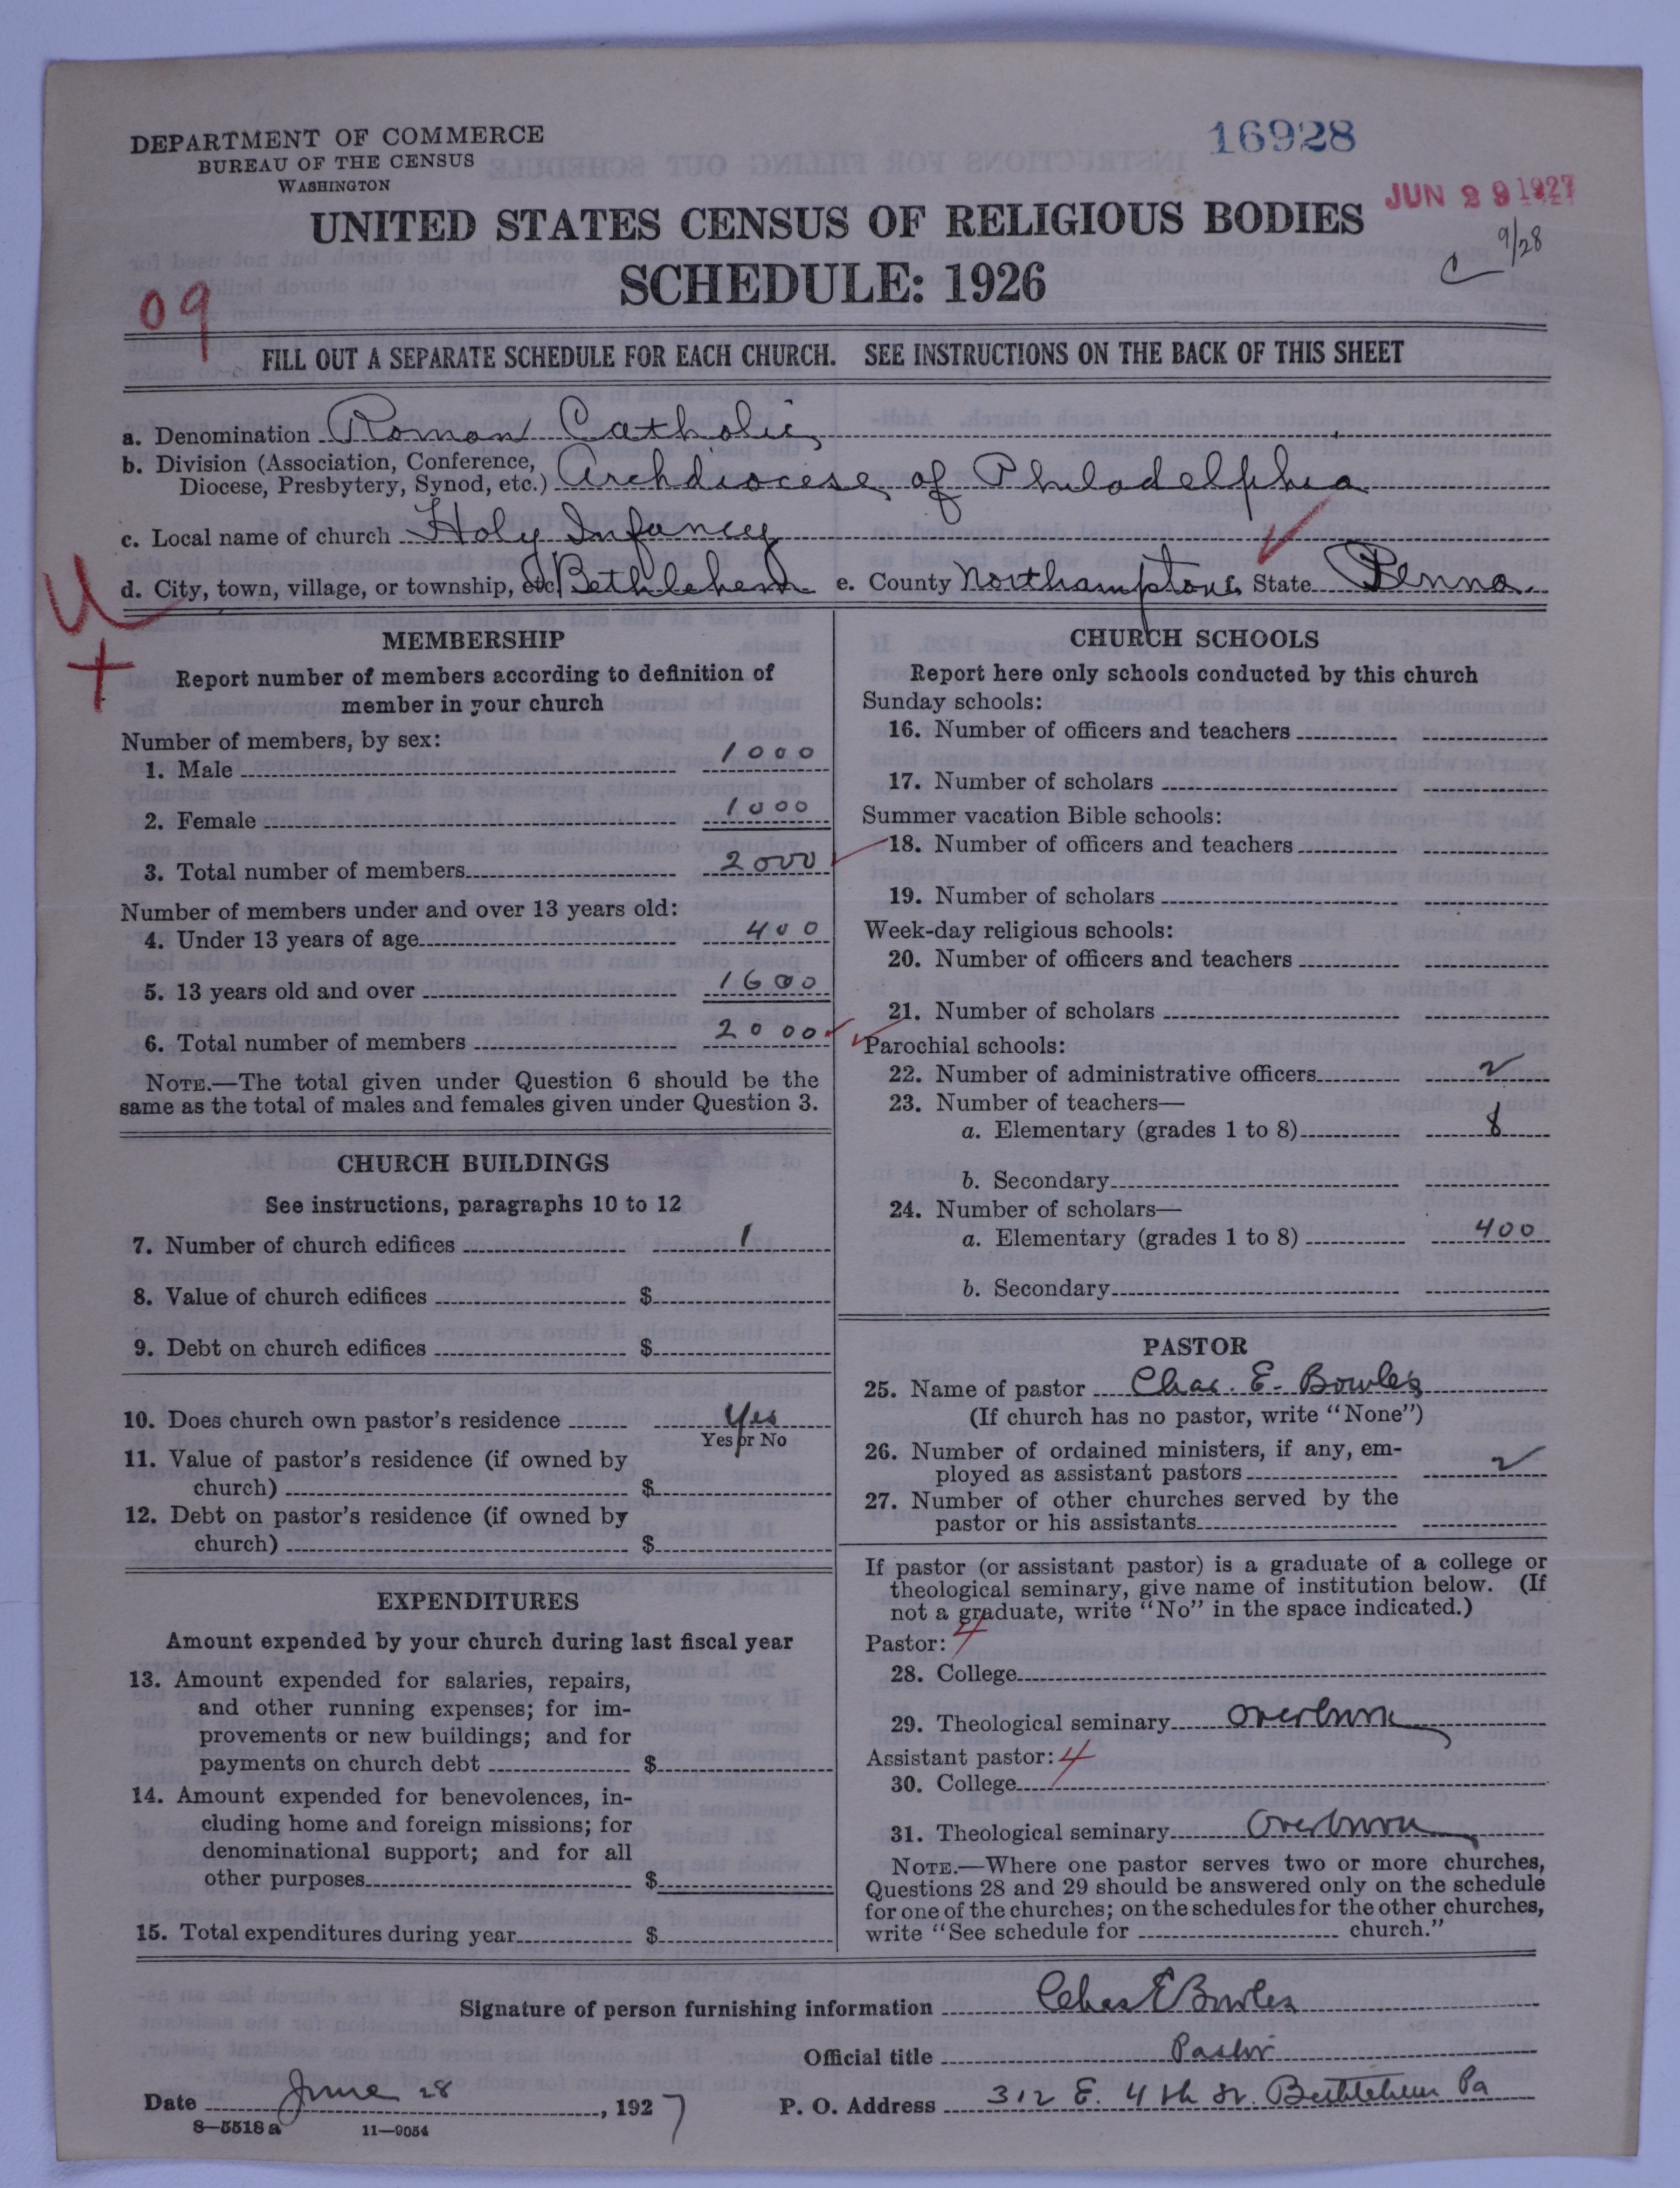 DEPARTMENT OF COMMERCE
BUREAU OF THE CENSUS
WASHINGTON
16928
JUN 29 1927
UNITED STATES CENSUS OF RELIGIOUS BODIES
9/28
C
SCHEDULE: 1926
09
FILL OUT A SEPARATE SCHEDULE FOR EACH CHURCH. SEE INSTRUCTIONS ON THE BACK OF THIS SHEET
a. Denomination Roman Catholic
b. Division (Association, Conference, Diocese, Presbytery, Synod, etc.) Archdiocese of Philadelphia
c. Local name of church Holy Infancy
d. City, town, village, or township, etc. Bethlehem e. County Northampton State Penna.
U
MEMBERSHIP
Report number of members according to definition of
member in your church
Number of members, by sex:
1. Male 1000
2. Female 1000
3. Total number of members 2000
Number of members under and over 13 years old:
4. Under 13 years of age 400
5. 13 years old and over 1600
6. Total number of members 2000
NOTE.—The total given under Question 6 should be the
same as the total of males and females given under Question 3.
CHURCH BUILDINGS
See instructions, paragraphs 10 to 12
7. Number of church edifices 1
8. Value of church edifices $
9. Debt on church edifices $
10. Does church own pastor's residence Yes
Yes or No
11. Value of pastor's residence (if owned by
church) $
12. Debt on pastor's residence (if owned by
church) $
EXPENDITURES
Amount expended by your church during last fiscal year
13. Amount expended for salaries, repairs,
and other running expenses; for im-
provements or new buildings; and for
payments on church debt $
14. Amount expended for benevolences, in-
cluding home and foreign missions; for
denominational support; and for all
other purposes $
15. Total expenditures during year $
CHURCH SCHOOLS
Report here only schools conducted by this church
Sunday schools:
16. Number of officers and teachers
17. Number of scholars
Summer vacation Bible schools:
18. Number of officers and teachers
19. Number of scholars
Week-day religious schools:
20. Number of officers and teachers
21. Number of scholars
Parochial schools:
22. Number of administrative officers 2
23. Number of teachers—
a. Elementary (grades 1 to 8) 8
b. Secondary
24. Number of scholars—
a. Elementary (grades 1 to 8) 400
b. Secondary
PASTOR
25. Name of pastor Chas. E. Bowles
(If church has no pastor, write "None")
26. Number of ordained ministers, if any, em-
ployed as assistant pastors 2
27. Number of other churches served by the
pastor or his assistants
If pastor (or assistant pastor) is a graduate of a college or
theological seminary, give name of institution below. (If
not a graduate, write "No" in the space indicated.)
Pastor: 4
28. College
29. Theological seminary Overbrook
Assistant pastor: 4
30. College
31. Theological seminary Overbrook
NOTE.—Where one pastor serves two or more churches,
Questions 28 and 29 should be answered only on the schedule
for one of the churches; on the schedules for the other churches,
write "See schedule for church."
Signature of person furnishing information Chas E Bowles
Official title Pastor
Date June 28, 1927 P. O. Address 312 E. 4th St. Bethlehem Pa
8—5518 a 11—9054